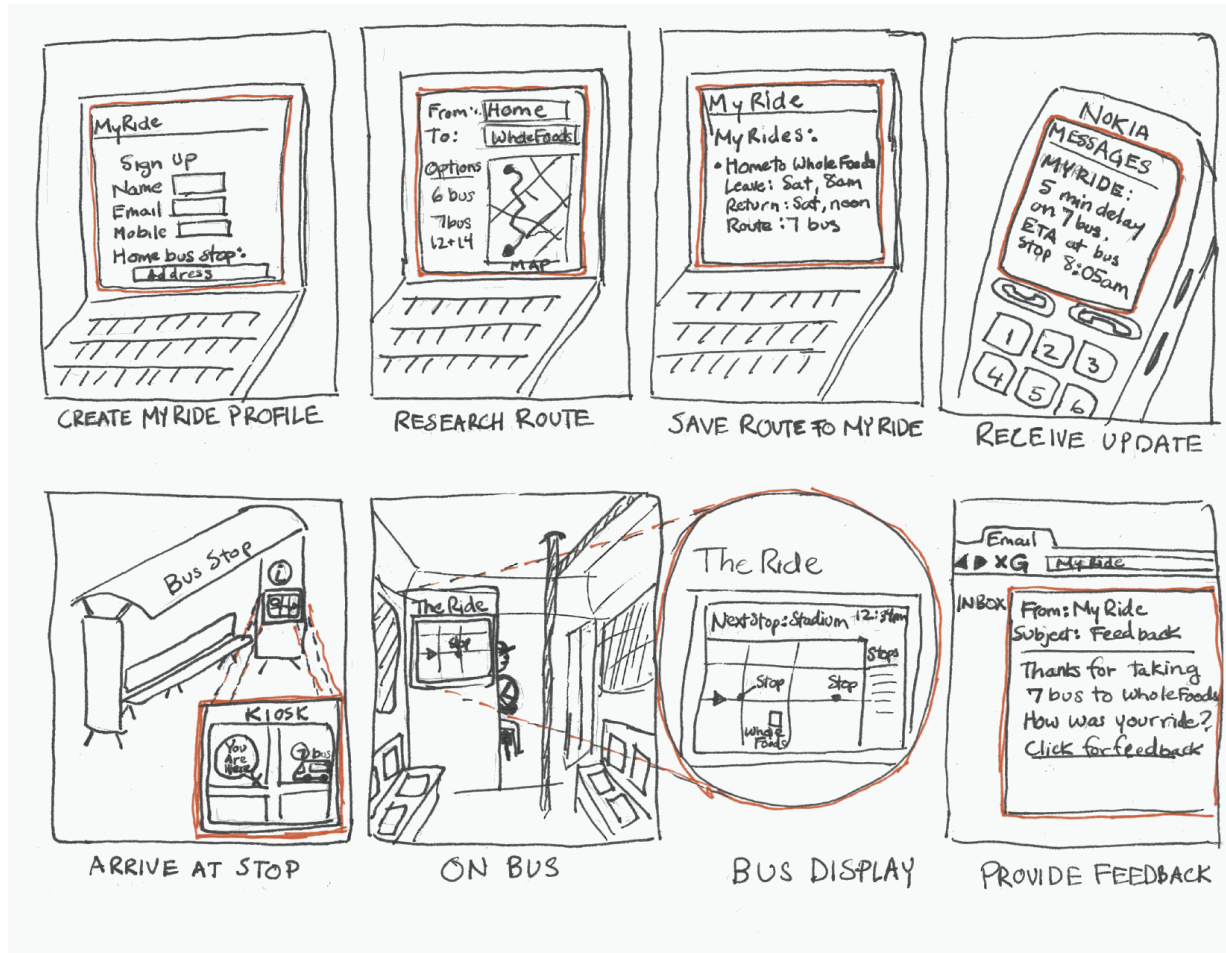 MyRide
Sign Up
Name
Email
Mobile
Home bus stop:
Address
CREATE MY RIDE PROFILE
From: Home
To: Whole Foods
Options
6 bus
7 bus
12+14
MAP
RESEARCH ROUTE
My Ride
My Rides:
• Home to Whole Foods
Leave: Sat, 8am
Return: Sat, noon
Route: 7 bus
SAVE ROUTE TO MY RIDE
NOKIA
MESSAGES
MY RIDE:
5 min delay
on 7 bus,
ETA at bus
stop 8:05am
1 2 3
4 5 6
RECEIVE UPDATE
Bus Stop
i
KIOSK
You
Are
Here
7 bus
ARRIVE AT STOP
The Ride
Stop
ON BUS
The Ride
Next Stop: Stadium
Stops
Stop Stop
Whole
Foods
BUS DISPLAY
Email
XG My Ride
INBOX
From: My Ride
Subject: Feedback
Thanks for taking
7 bus to Whole Foods
How was your ride?
Click for feedback
PROVIDE FEEDBACK